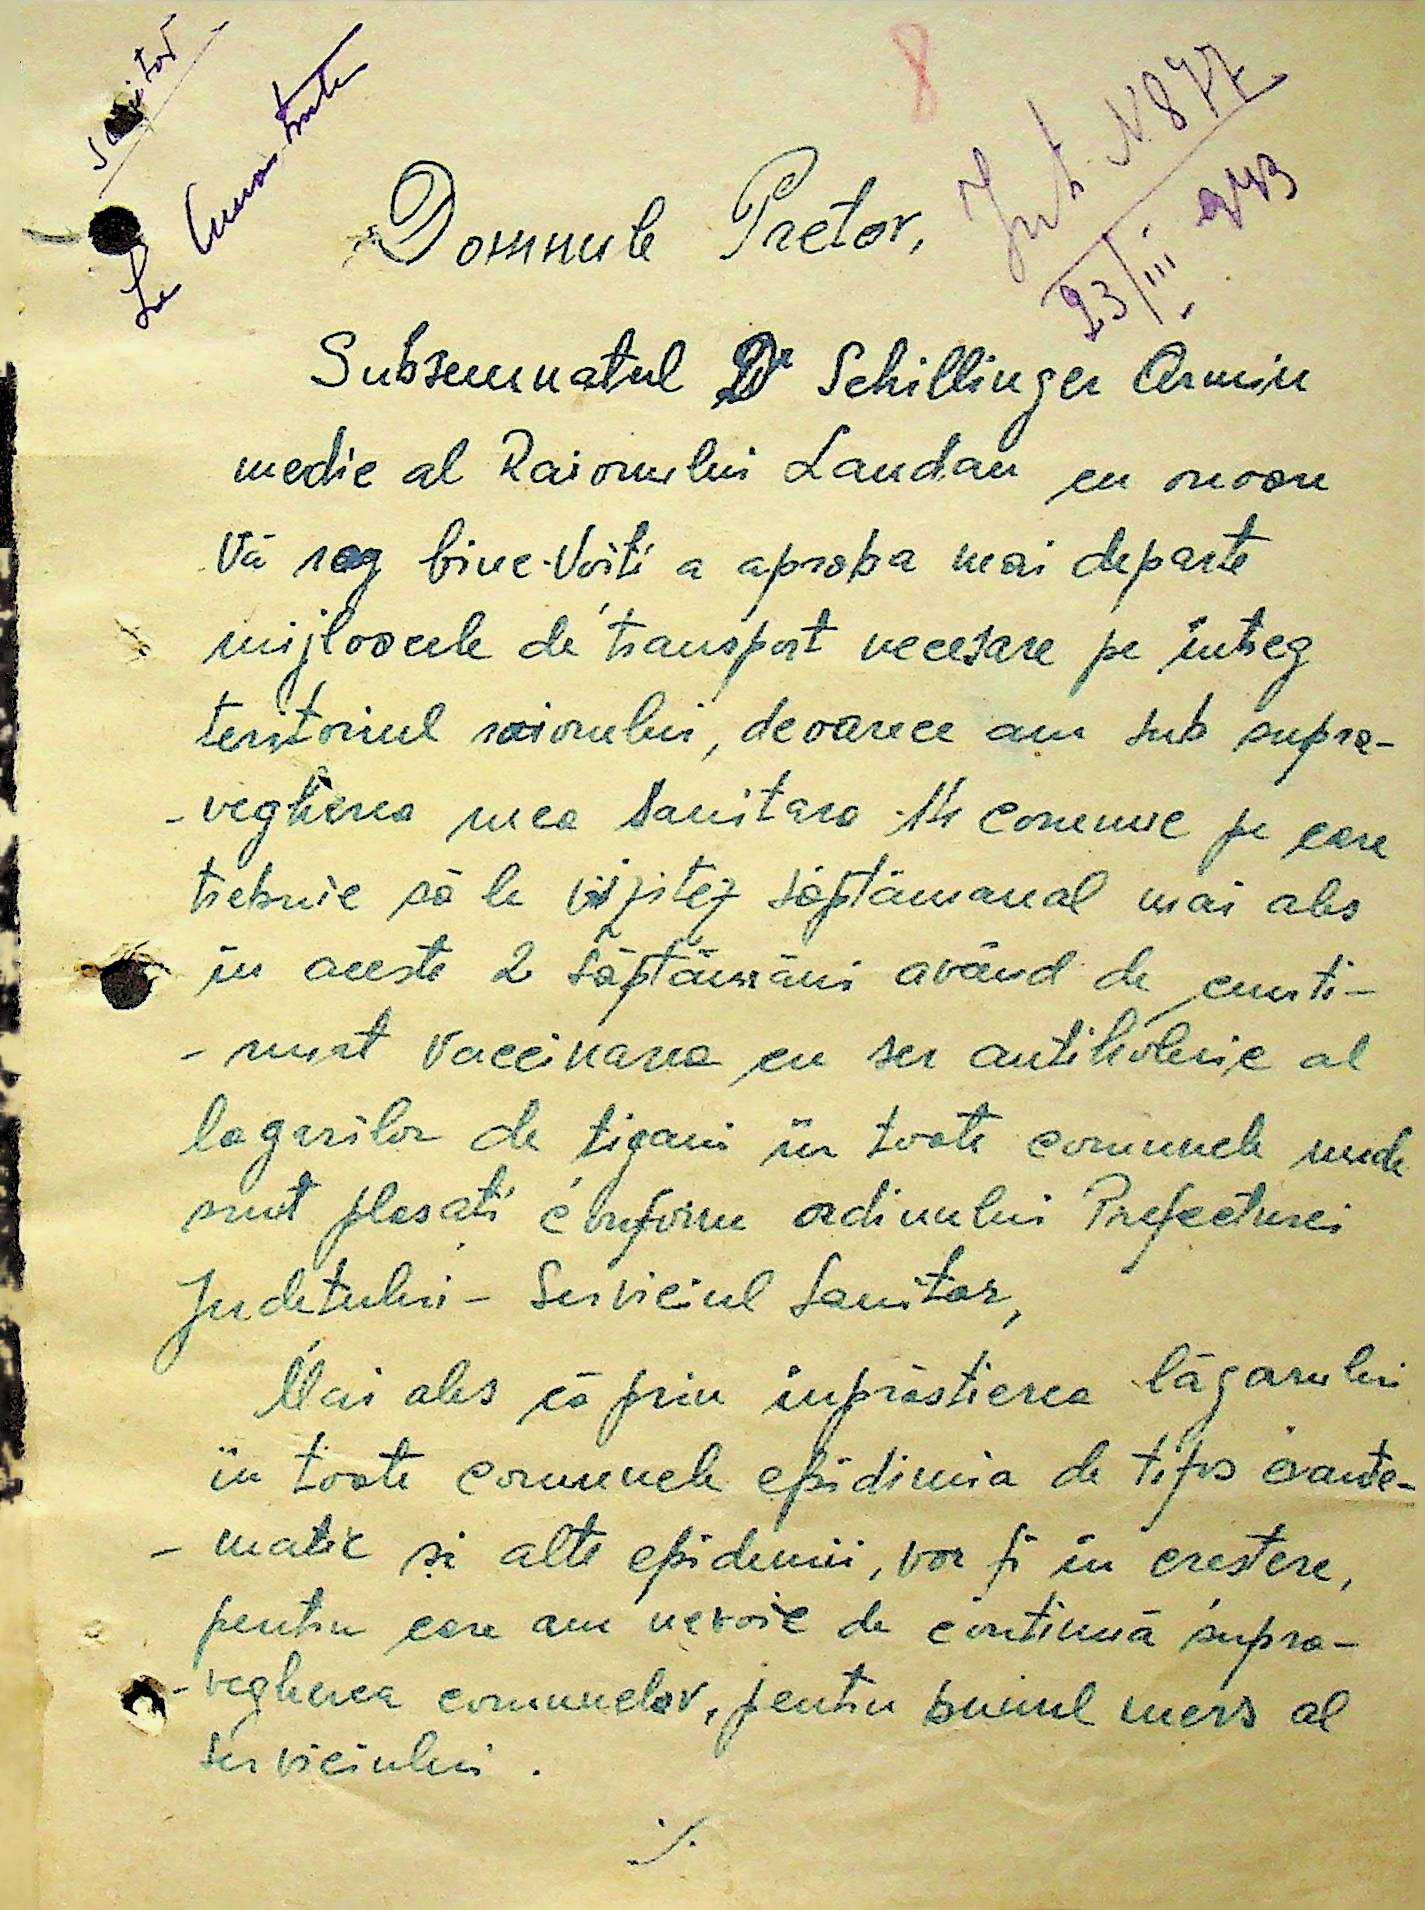 sanitar
La
8
Int. N. 877
23/III 943
Domnule Pretor,
Subsemnatul Dr Schillinger Armin
medic al Raionului Landau cu onoare
Vă rog bine-voiti a aproba mai departe
mijloacele de transport necesare pe intreg
teritoriul raionului, deoarece am sub supra-
-vegherea mea sanitara comune pe care
trebuie să le vizitez săptămanal mai ales
in aceste 2 săptămăni avănd de
- vaccinarea cu ser antiholeric al
lagarilor de tigani in toate comunele unde
sunt plasati conform ordinului Prefecturei
Judetului - Serviciul Sanitar,
Mai ales că prin inprăstierea lăgarului
in toate comunele epidimia de tifos exante-
-matic si alte epidemii, vor fi in crestere,
pentru care am nevoie de continuă supra-
-vegherea comunelor, pentru bunul mers al
serviciului.
./.